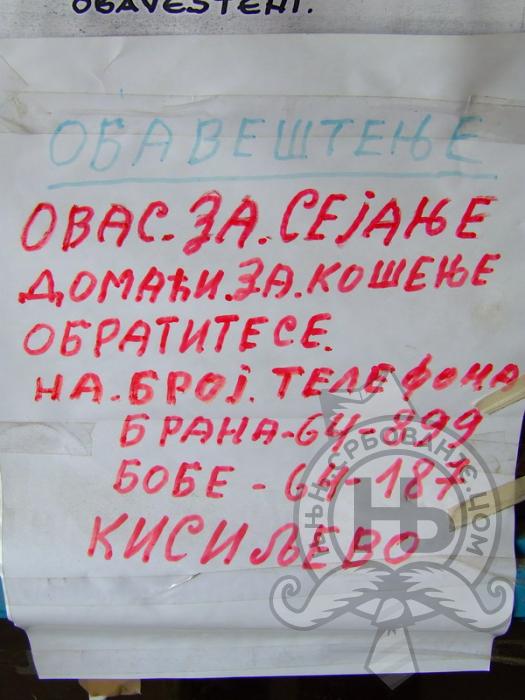 OBAVEŠTENI.
ОБАВЕШТЕЊЕ
ОВАС.ЗА.СЕЈАЊЕ
ДОМАЋИ.ЗА.КОШЕЊЕ
ОБРАТИТЕСЕ.
НА.БРОЈ.ТЕЛЕФОНА
БРАНА-64-899
БОБЕ - 64-187
КИСИЉЕВО
ЊЊЊ.СРБОВАЊЕ.ЦОМ
Њ